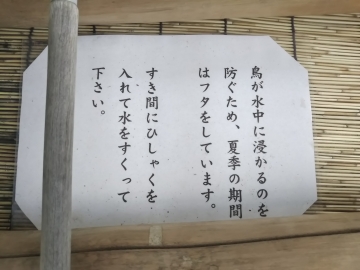 鳥が水中に浸かるのを
防ぐため、夏季の期間
はフタをしています。
すき間にひしゃくを
入れて水をすくって
下さい。